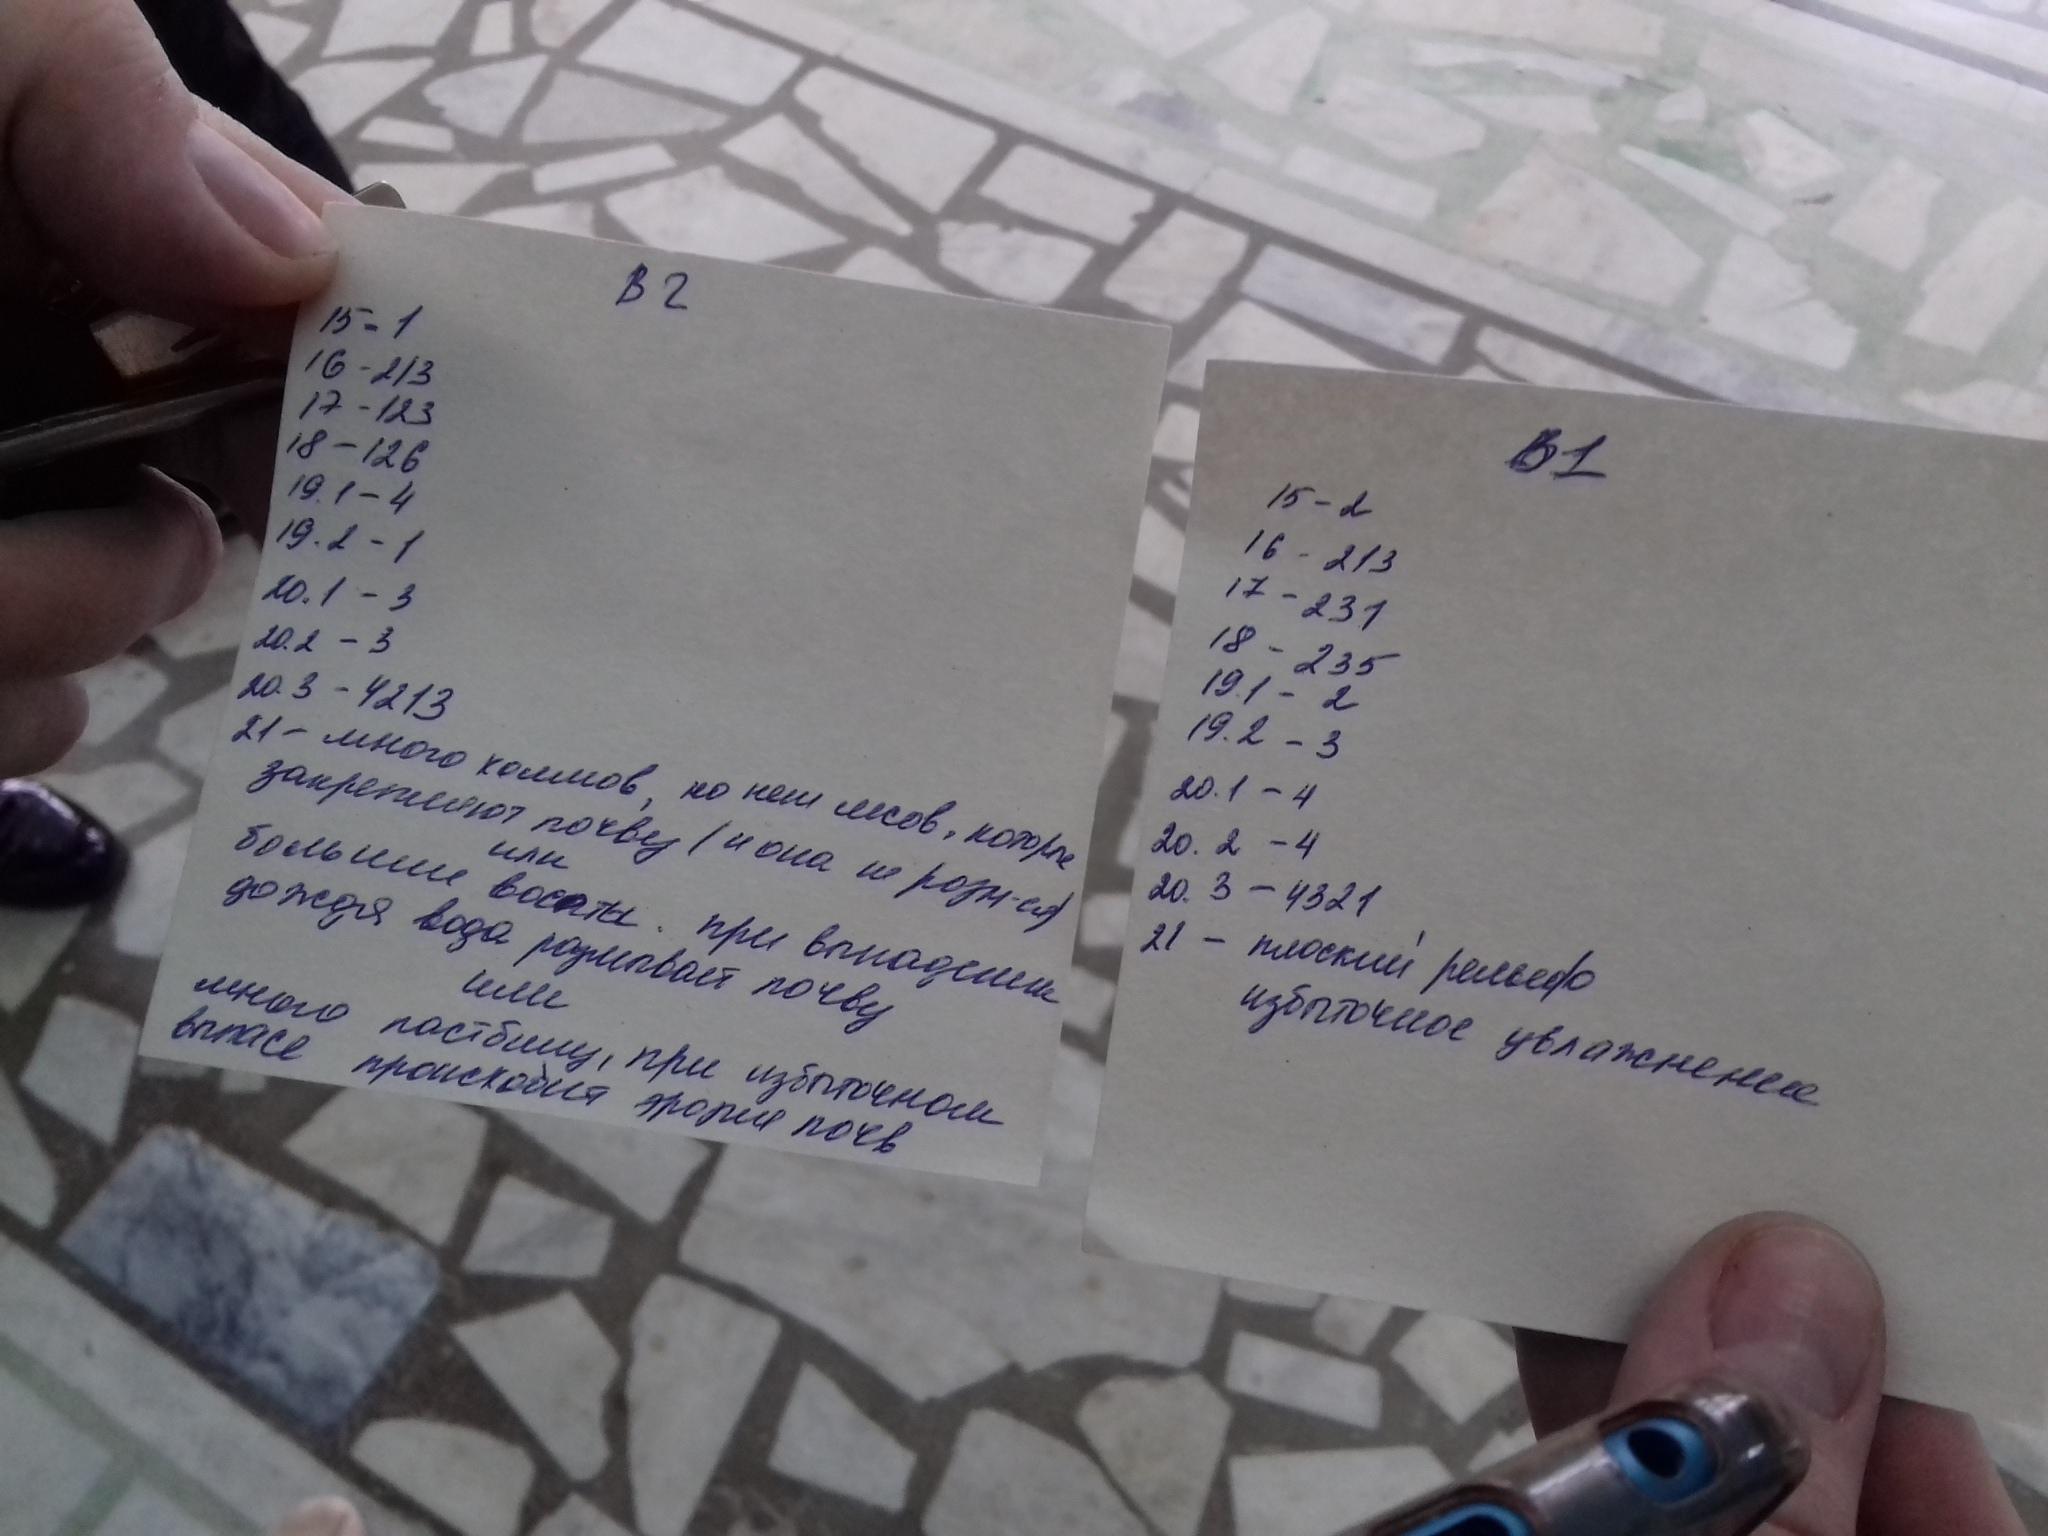 В 2
15-1
16-213
17-123
18-126
19.1-4
19.2-1
20.1-3
20.2-3
20.3-4213
21- много холмов, но нет лесов, которые
закрепляют почву (и она не разм-ся)
или
большие высоты. при выпадении
дождя вода размывает почву
или
много пастбищ, при избыточном
выпасе происходит эрозия почв
В1
15-2
16-213
17-231
18-235
19.1-2
19.2-3
20.1-4
20.2-4
20.3-4321
21 - плоский рельеф
избыточное увлажнение